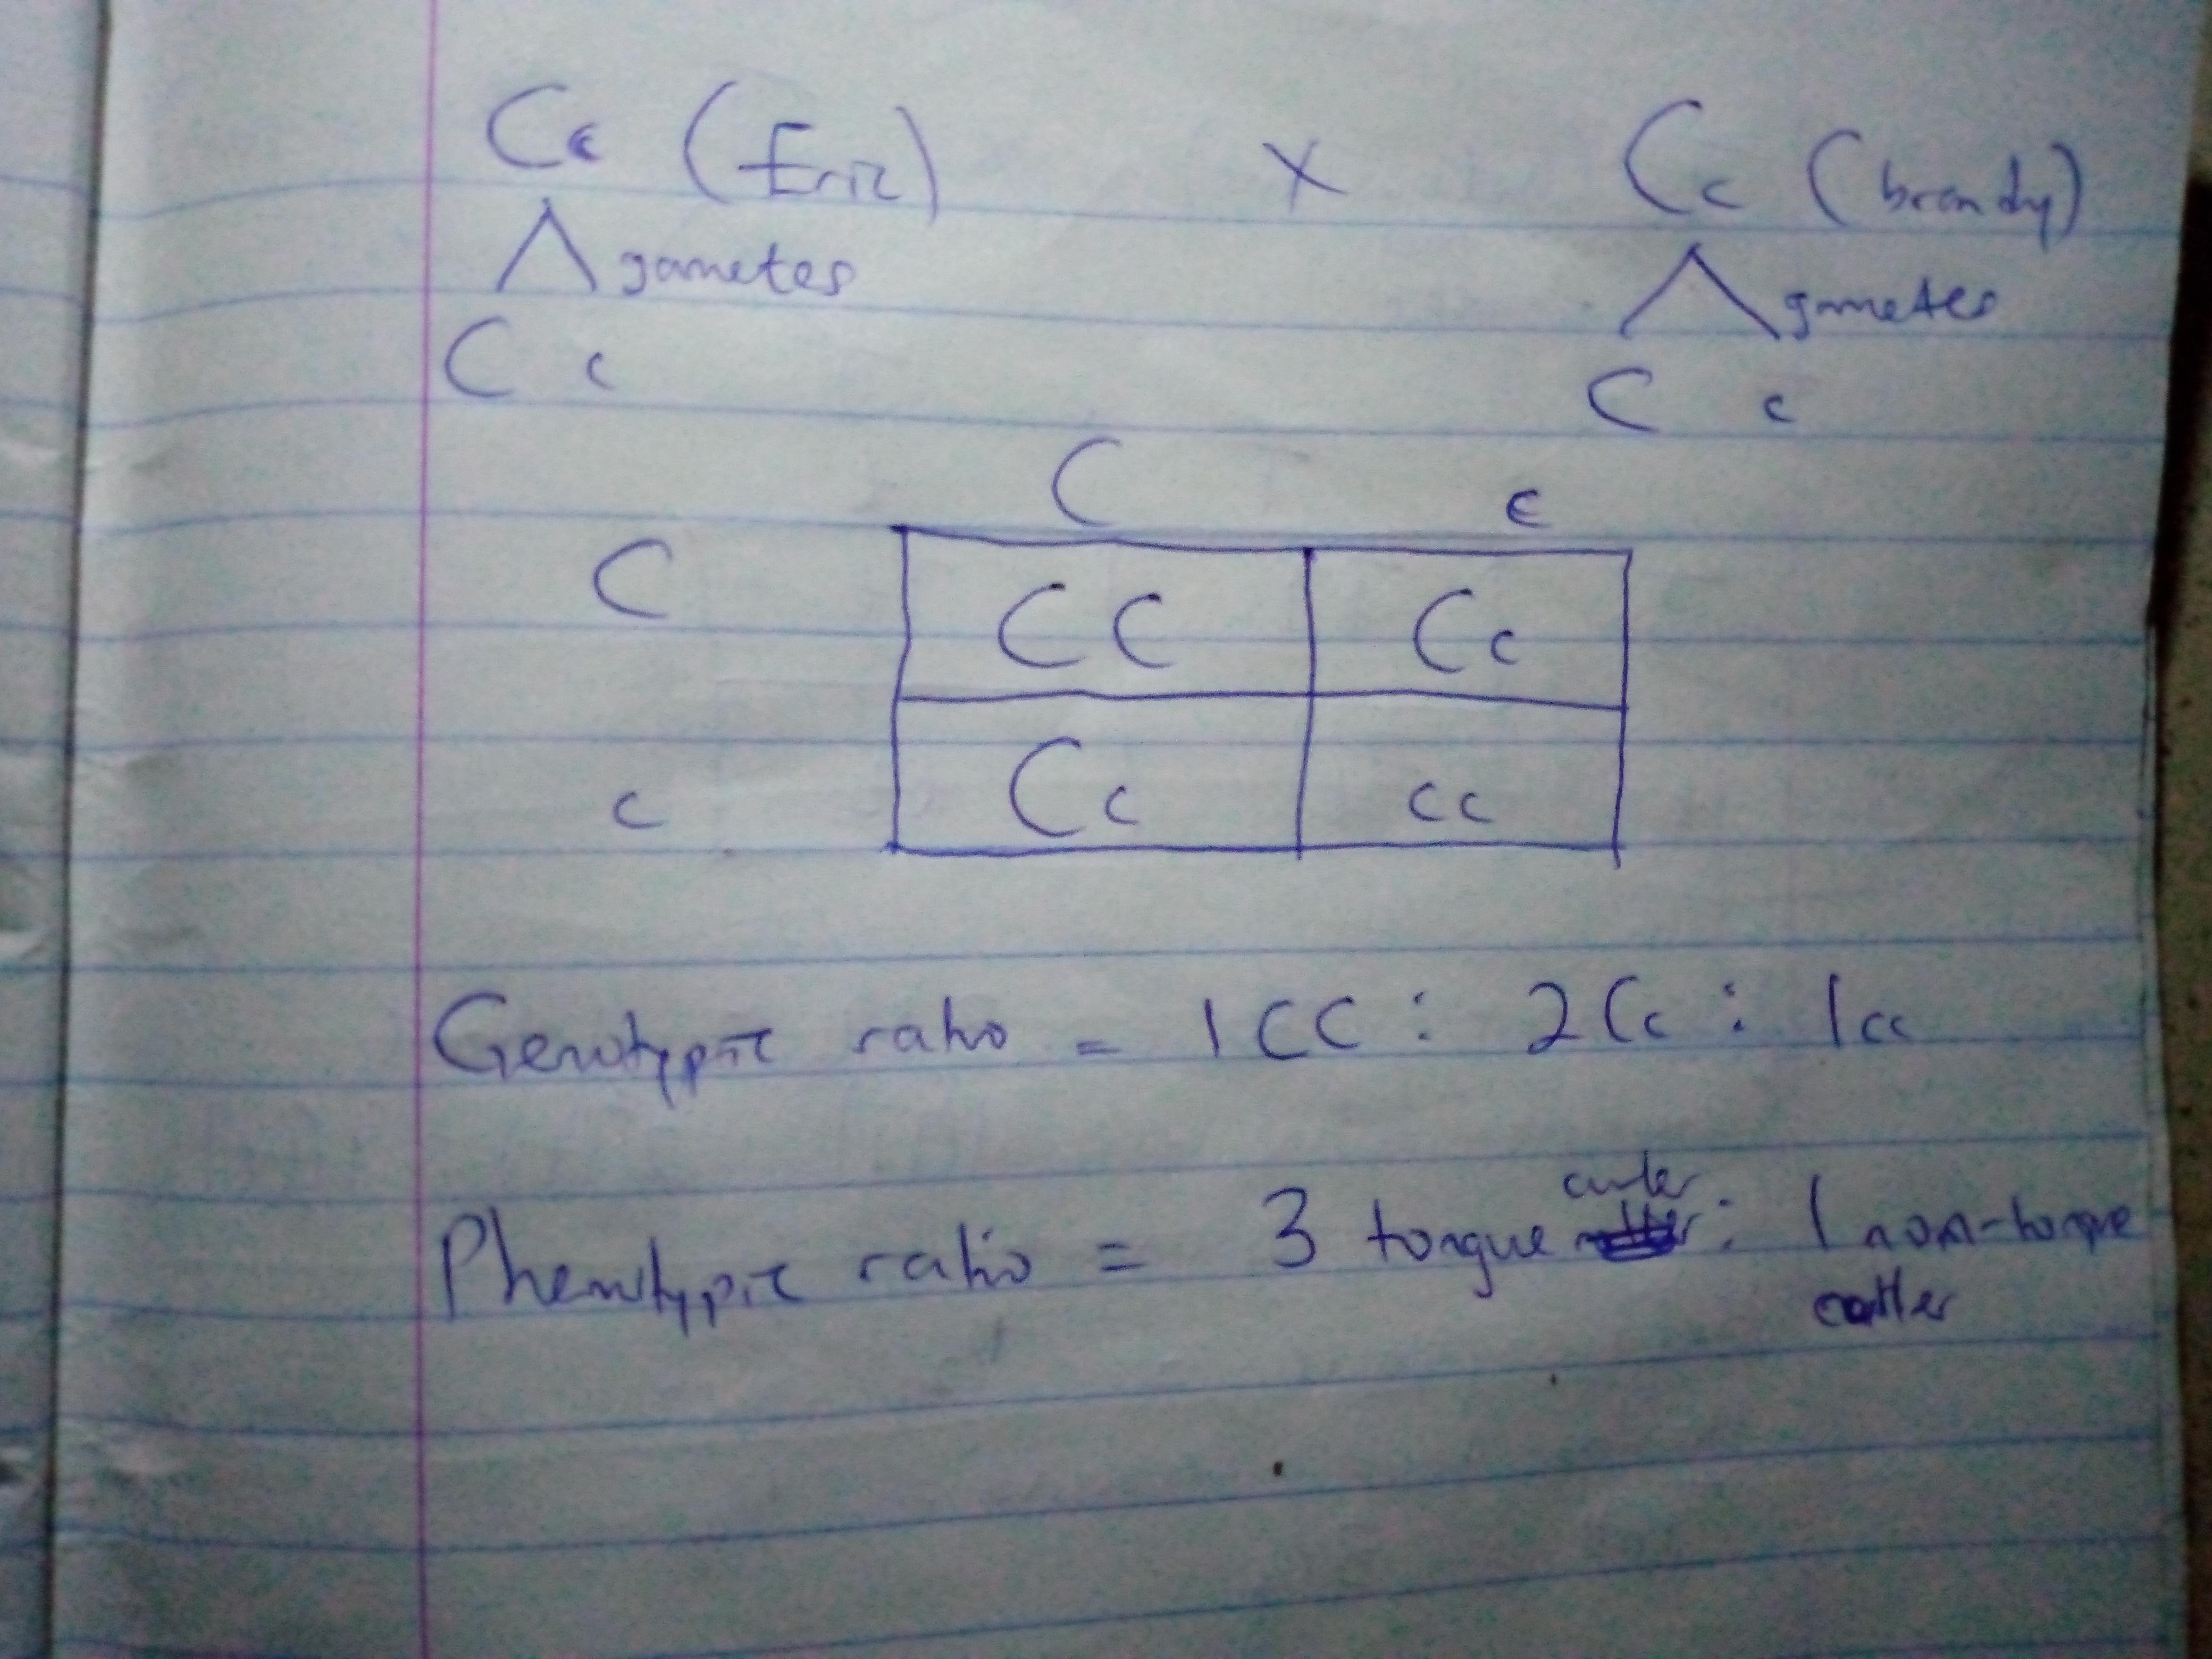 Cc (Eric) X Cc (brandy)
gametes gametes
C c C c
C c
C CC Cc
c Cc cc
Genotypic ratio = 1CC : 2Cc : 1cc
Phenotypic ratio = 3 tongue curler : 1 non-tongue
curler